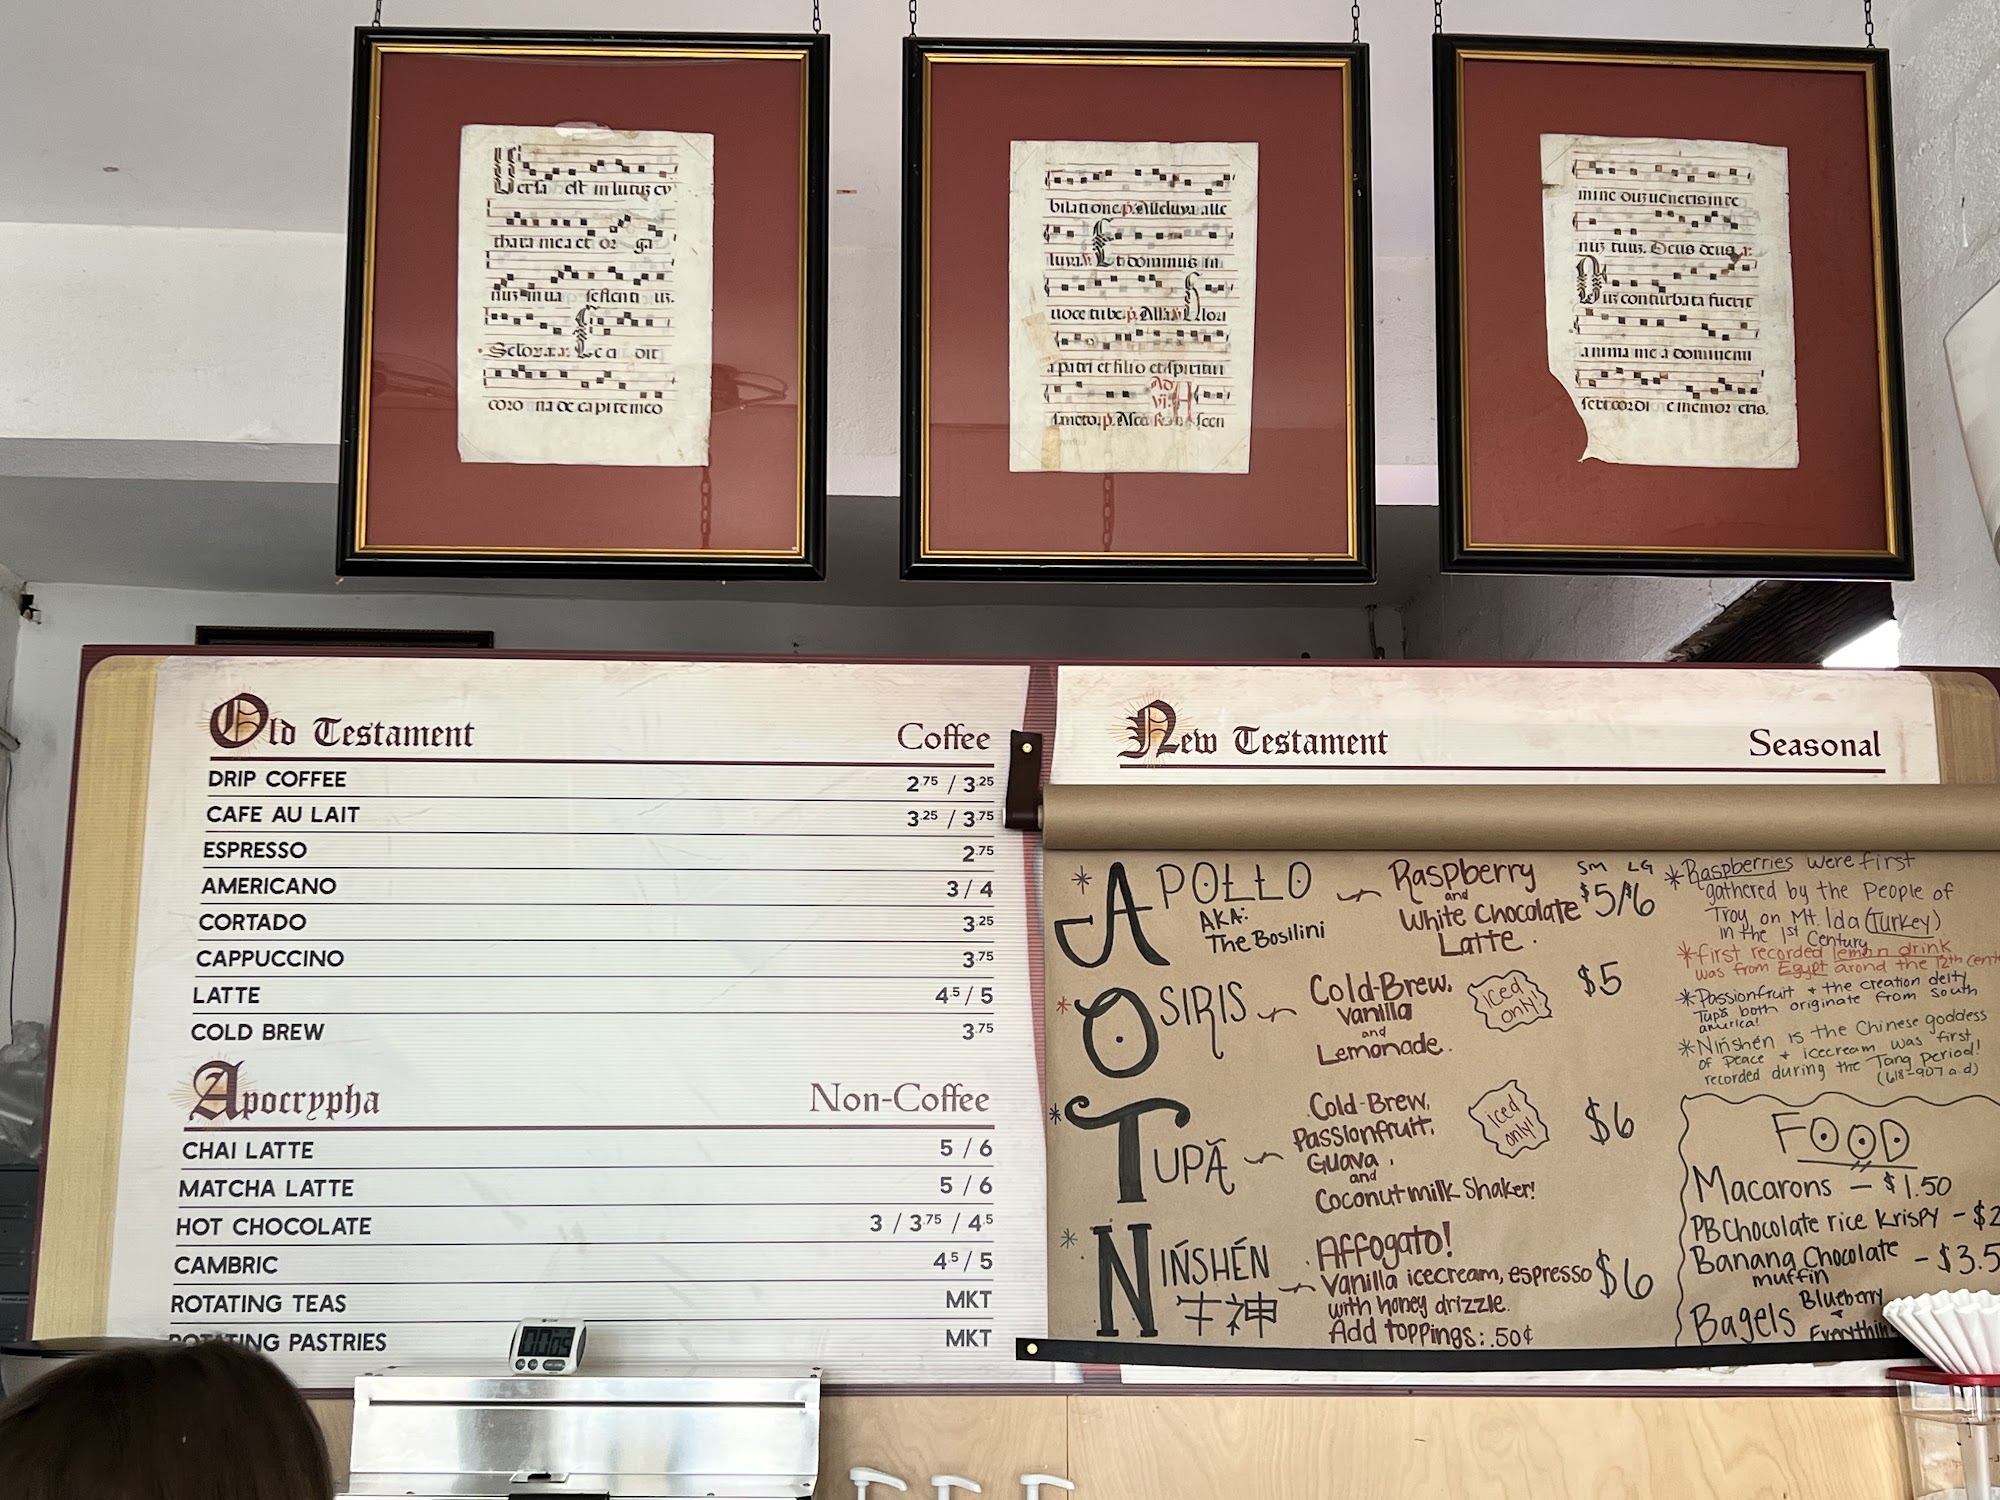 ersa est in luctuz cy
thara mea et or ga
coro na de capite meo
bilatione. p. Alleluya alle
luya. Et dominus in
uoce tube. p. Alla
a patri et filio et spiritui
nuz tuuz. Deus deus
uiz conturbata fuerit
anima me a domineni
Old Testament Coffee
DRIP COFFEE 2.75 / 3.25
CAFE AU LAIT 3.25 / 3.75
ESPRESSO 2.75
AMERICANO 3 / 4
CORTADO 3.25
CAPPUCCINO 3.75
LATTE 4.5 / 5
COLD BREW 3.75
Apocrypha Non-Coffee
CHAI LATTE 5 / 6
MATCHA LATTE 5 / 6
HOT CHOCOLATE 3 / 3.75 / 4.5
CAMBRIC 4.5 / 5
ROTATING TEAS MKT
ROTATING PASTRIES MKT
New Testament Seasonal
SM LG
* APOLLO ~ Raspberry $5/$6
and
AKA: White Chocolate
The Bosilini Latte.
* OSIRIS ~ Cold-Brew, iced only! $5
Vanilla
and
Lemonade.
* TUPÃ ~ Cold-Brew, iced only! $6
Passionfruit,
Guava,
and
Coconutmilk Shaker!
* NIŃSHÉN ~ Affogato! $6
Vanilla icecream, espresso
神 with honey drizzle.
Add toppings: .50¢
* Raspberries were first
gathered by the People of
Troy on Mt. Ida (Turkey)
in the 1st Century
* First recorded lemon drink
was from Egypt arond the 12th
* Passionfruit + the creation deity
Tupã both originate from South
america!
* Nińshén is the Chinese goddess
of Peace + icecream was first
recorded during the Tang Period!
(618-907 a.d)
FOOD
Macarons - $1.50
PB Chocolate rice Krispy - $2
Banana Chocolate - $3.5
muffin
Bagels Blueberry
+